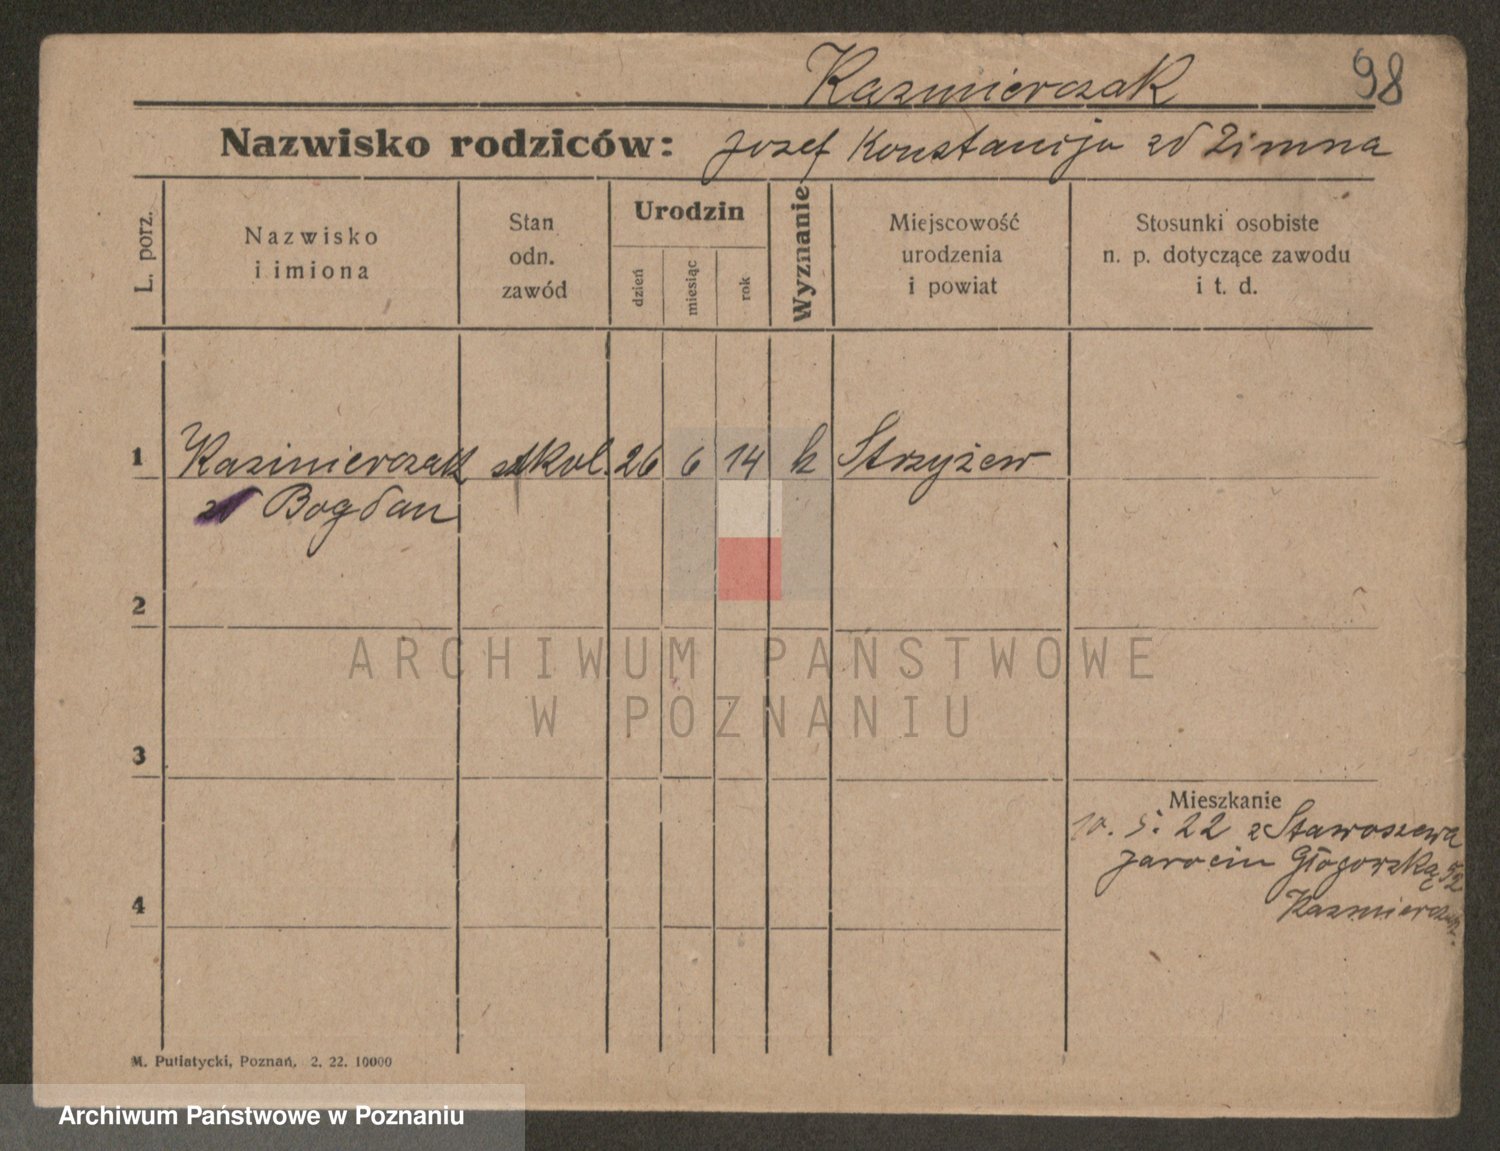 Kazmierczak 98
Nazwisko rodziców: Jozef Konstancja zd Zimna
L. porz.
Nazwisko
i imiona
Stan
odn.
zawód
Urodzin
dzień
miesiąc
rok
Wyznanie
Miejscowość
urodzenia
i powiat
Stosunki osobiste
n. p. dotyczące zawodu
i t. d.
1 Kazimierczak szkol. 26 6 14 k Strzyżew
Bogdan
2
ARCHIWUM PAŃSTWOWE
W POZNANIU
3
Mieszkanie
10. 5. 22 z Staroszewa
Jarocin Głogorską 52
Kazmierczak.
4
M. Putiatycki, Poznań, 2. 22. 10000
Archiwum Państwowe w Poznaniu